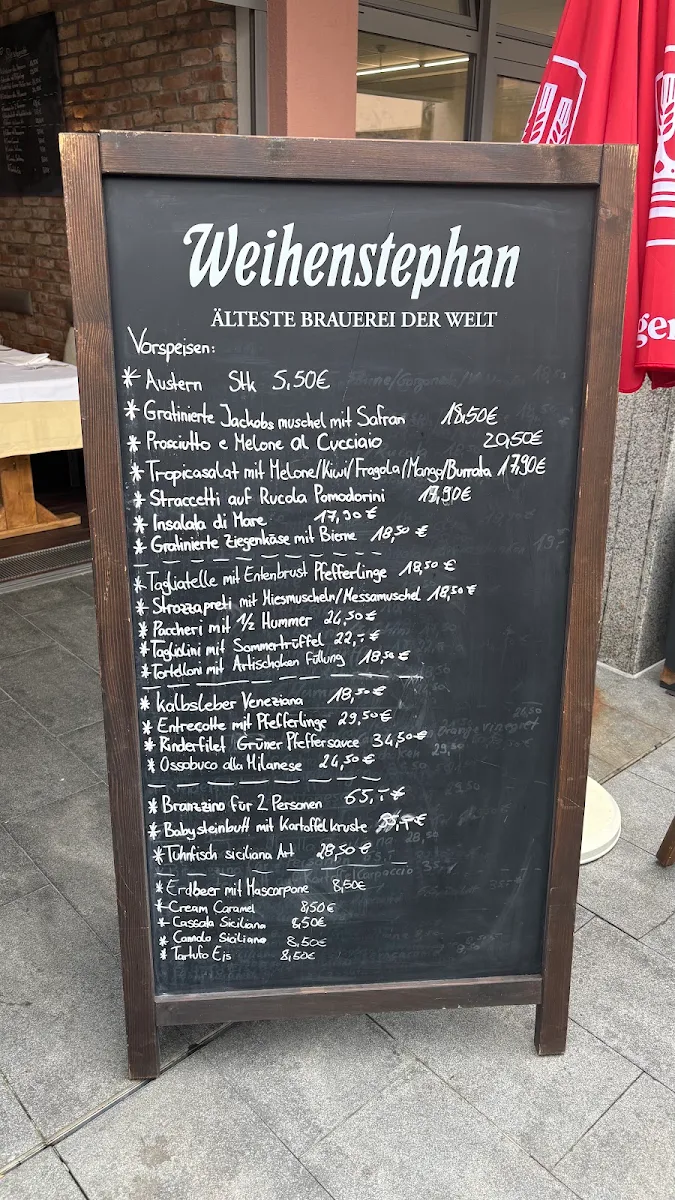 Weihenstephan
ÄLTESTE BRAUEREI DER WELT
Vorspeisen:
* Austern Stk 5,50€
* Gratinierte Jackobsmuschel mit Safran 18,50€
* Prosciutto e Melone al Cucciaio 20,50€
* Tropicasalat mit Melone/Kiwi/Fragola/Mango/Burrata 17,90€
* Straccetti auf Rucola Pomodorini 17,90€
* Insalata di Mare 17,90€
* Gratinierte Ziegenkäse mit Bierne 18,50€
* Tagliatelle mit Entenbrust Pfefferlinge 18,50€
* Strozzapreti mit Miesmuscheln/Messamuschel 18,50€
* Paccheri mit 1/2 Hummer 24,50€
* Tagliolini mit Sommertrüffel 22,-€
* Tortelloni mit Artischoken Füllung 18,50€
* Kalbsleber Veneziana 18,50€
* Entrecotte mit Pfefferlinge 29,50€
* Rinderfilet Grüner Pfeffersauce 34,50€
* Ossobuco alla Milanese 24,50€
* Branzino für 2 Personen 65,-€
* Babysteinbutt mit Kartoffelkruste
* Tuhnfisch siciliana Art 28,50€
* Erdbeer mit Mascarpone 8,50€
* Cream Caramel 8,50€
* Cassata Siciliana 8,50€
* Cannolo Siciliano 8,50€
* Tartufo Eis 8,50€